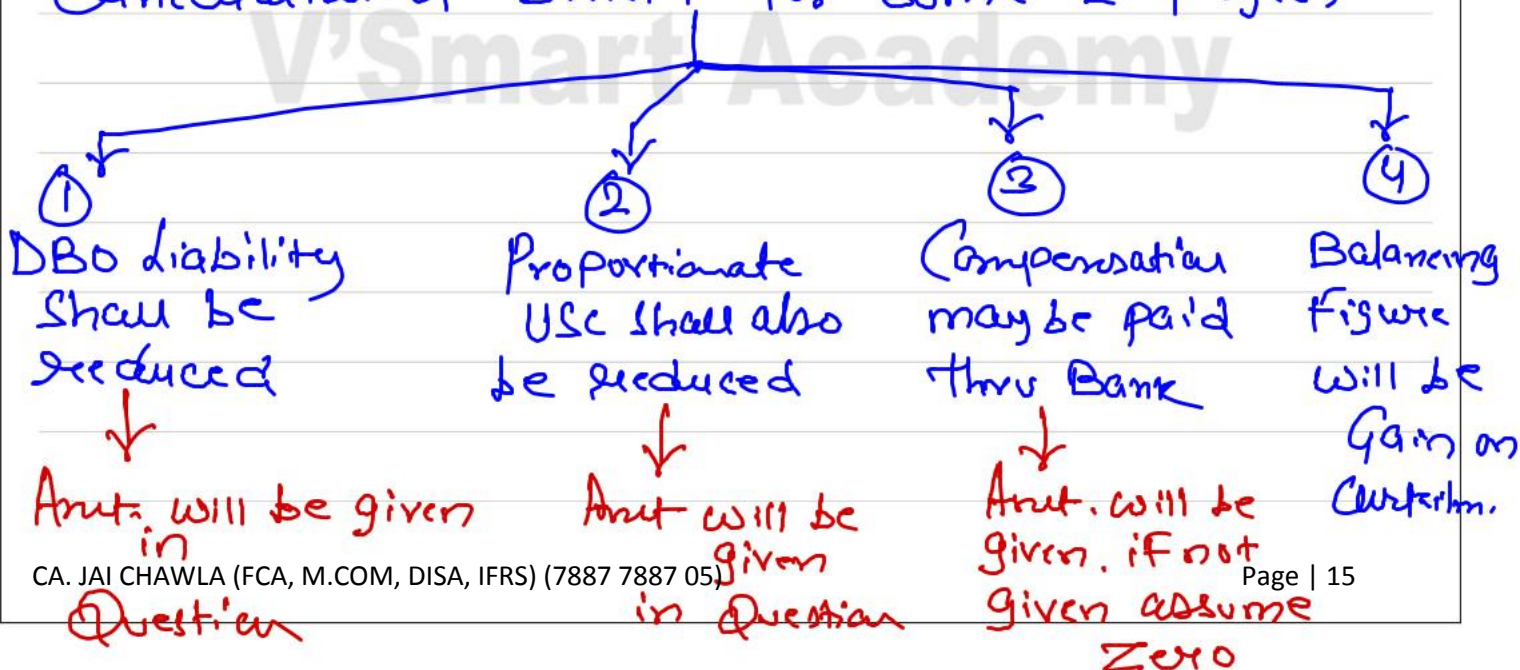 V'Smart Academy
①
DBO Liability
shall be
reduced
Amt. will be given
in
Question
②
Proportionate
USC shall also
be reduced
Amt will be
given
in Question
③
Compensation
may be paid
thru Bank
Amt. will be
given. if not
given assume
Zero
④
Balancing
Figure
will be
Gain on
CA. JAI CHAWLA (FCA, M.COM, DISA, IFRS) (7887 7887 05)
Page | 15